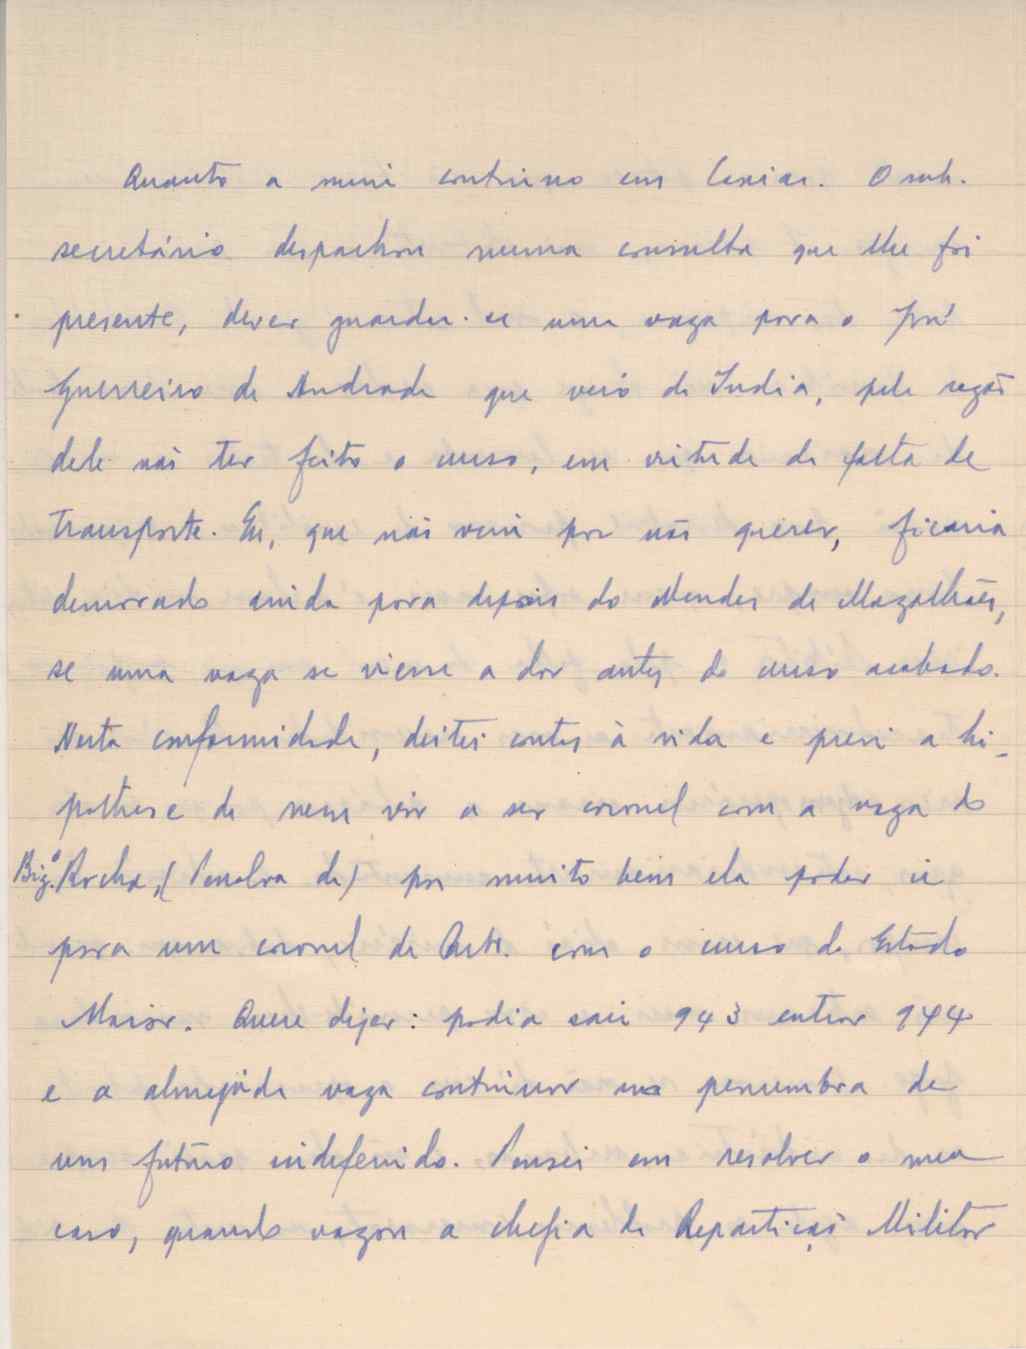 Quanto a mim continuo em Caxias. O sub-
secretário despachou numa consulta que lhe foi
presente, dever guardar-se uma vaga para o José
Guerreiro de Andrade que veio da India, pela razão
dele não ter feito o curso, em virtude da falta de
transporte. Eu, que não vim por não querer, ficaria
demorado ainda para depois do Mendes de Magalhães,
se uma vaga se viesse a dar antes do curso acabado.
Nesta conformidade, deitei contas à vida e previ a hi-
pothese de nem vir a ser coronel com a vaga do
Brigº. Rocha, (Penalva da) por muito bem ela poder ir
para um coronel de Arts. com o curso do Estado
Maior. Quere dizer: podia sair 943 entrar 944
e a almejada vaga continuar na penumbra de
um futuro indefenido. Pensei em resolver o meu
caso, quando vagou a chefia da Repartição Militar